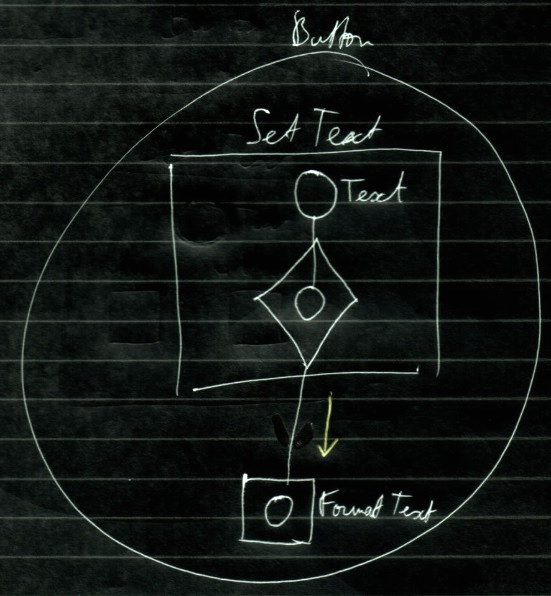 Button
Set Text
Text
Format Text